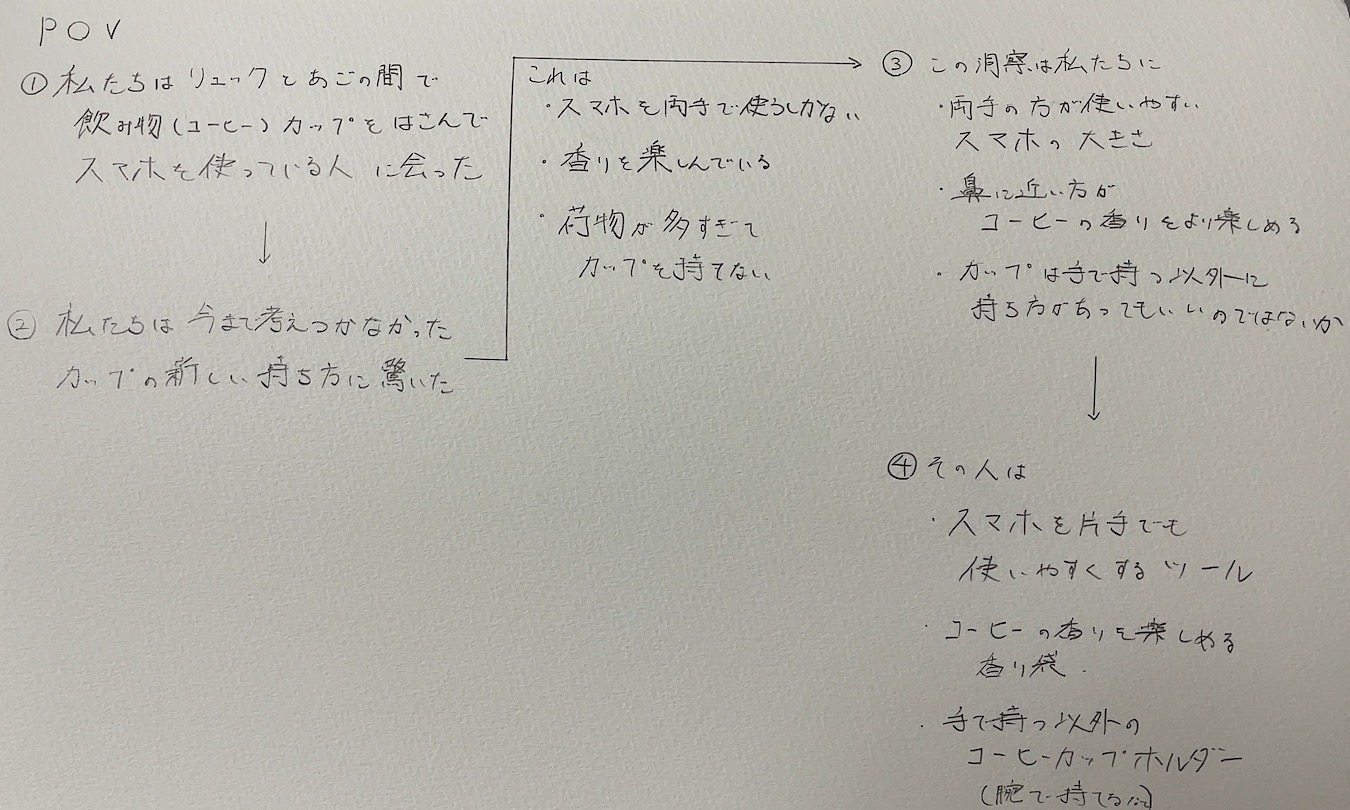 POV
① 私たちは リュックとあごの間で
飲み物(コーヒー)カップをはさんで
スマホを使っている人 に会った
↓
② 私たちは 今まで考えつかなかった
カップの新しい持ち方に驚いた
これは
・スマホを両手で使うしかない
・香りを楽しんでいる
・荷物が多すぎて
カップを持てない
③ この洞察は私たちに
・両手の方が使いやすい
スマホの大きさ
・鼻に近い方が
コーヒーの香りをより楽しめる
・カップは手で持つ以外に
持ち方があってもいいのではないか
↓
④ その人は
・スマホを片手でも
使いやすくするツール
・コーヒーの香りを楽しめる
香り袋.
・手で持つ以外の
コーヒーカップホルダー
(腕で持てるetc)